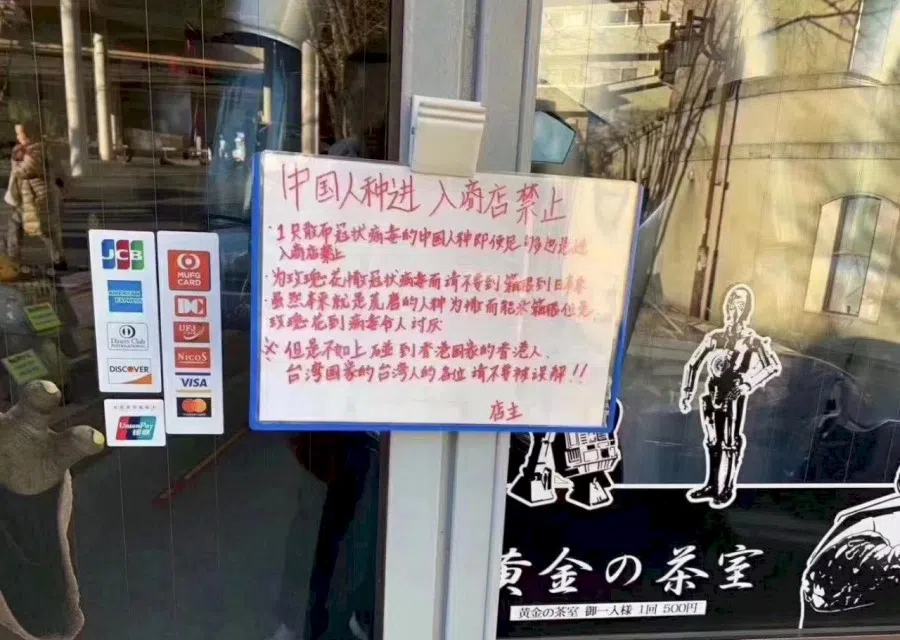 中国人种进入商店禁止
・1只散布冠状病毒的中国人种即使足够也
入商店禁止
・为玫瑰花撒冠状病毒而请不要到箱根到日本来
・虽然本来就是荒磨的人种为撒而能来箱根但是
玫瑰花到病毒令人讨厌
※但是不如上碰到香港国家的香港人、
台湾国家的台湾人的各位请不要被误解!!
店主
JCB
AMERICAN EXPRESS
Diners Club
INTERNATIONAL
DISCOVER
UnionPay
银联
MUFG
CARD
DC
UFJ
NICOS
VISA
黄金の茶室
黄金の茶室 御一人様 1回 500円